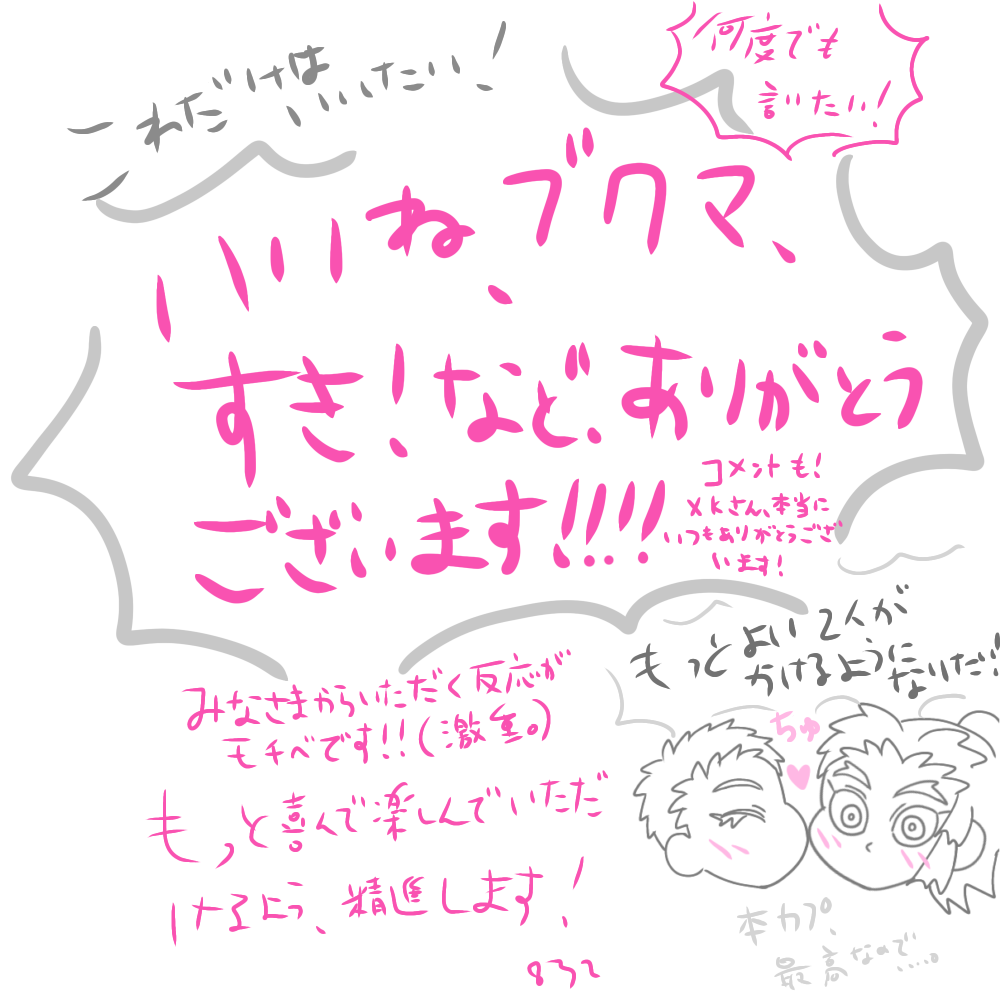 これだけは
いいたい！
何度でも
言いたい！
いいね、ブクマ、
すき！など、ありがとう
ございます!!!!
コメントも！
xkさん、本当に
いつもありがとうござ
います！
もっとよい2人が
かけるように
なりたい！
みなさまからいただく反応が
モチベです!!(激重。)
もっと喜んで楽しんでいただ
けるよう、精進します！
832
ちゅ
本カプ、
最高なので…。